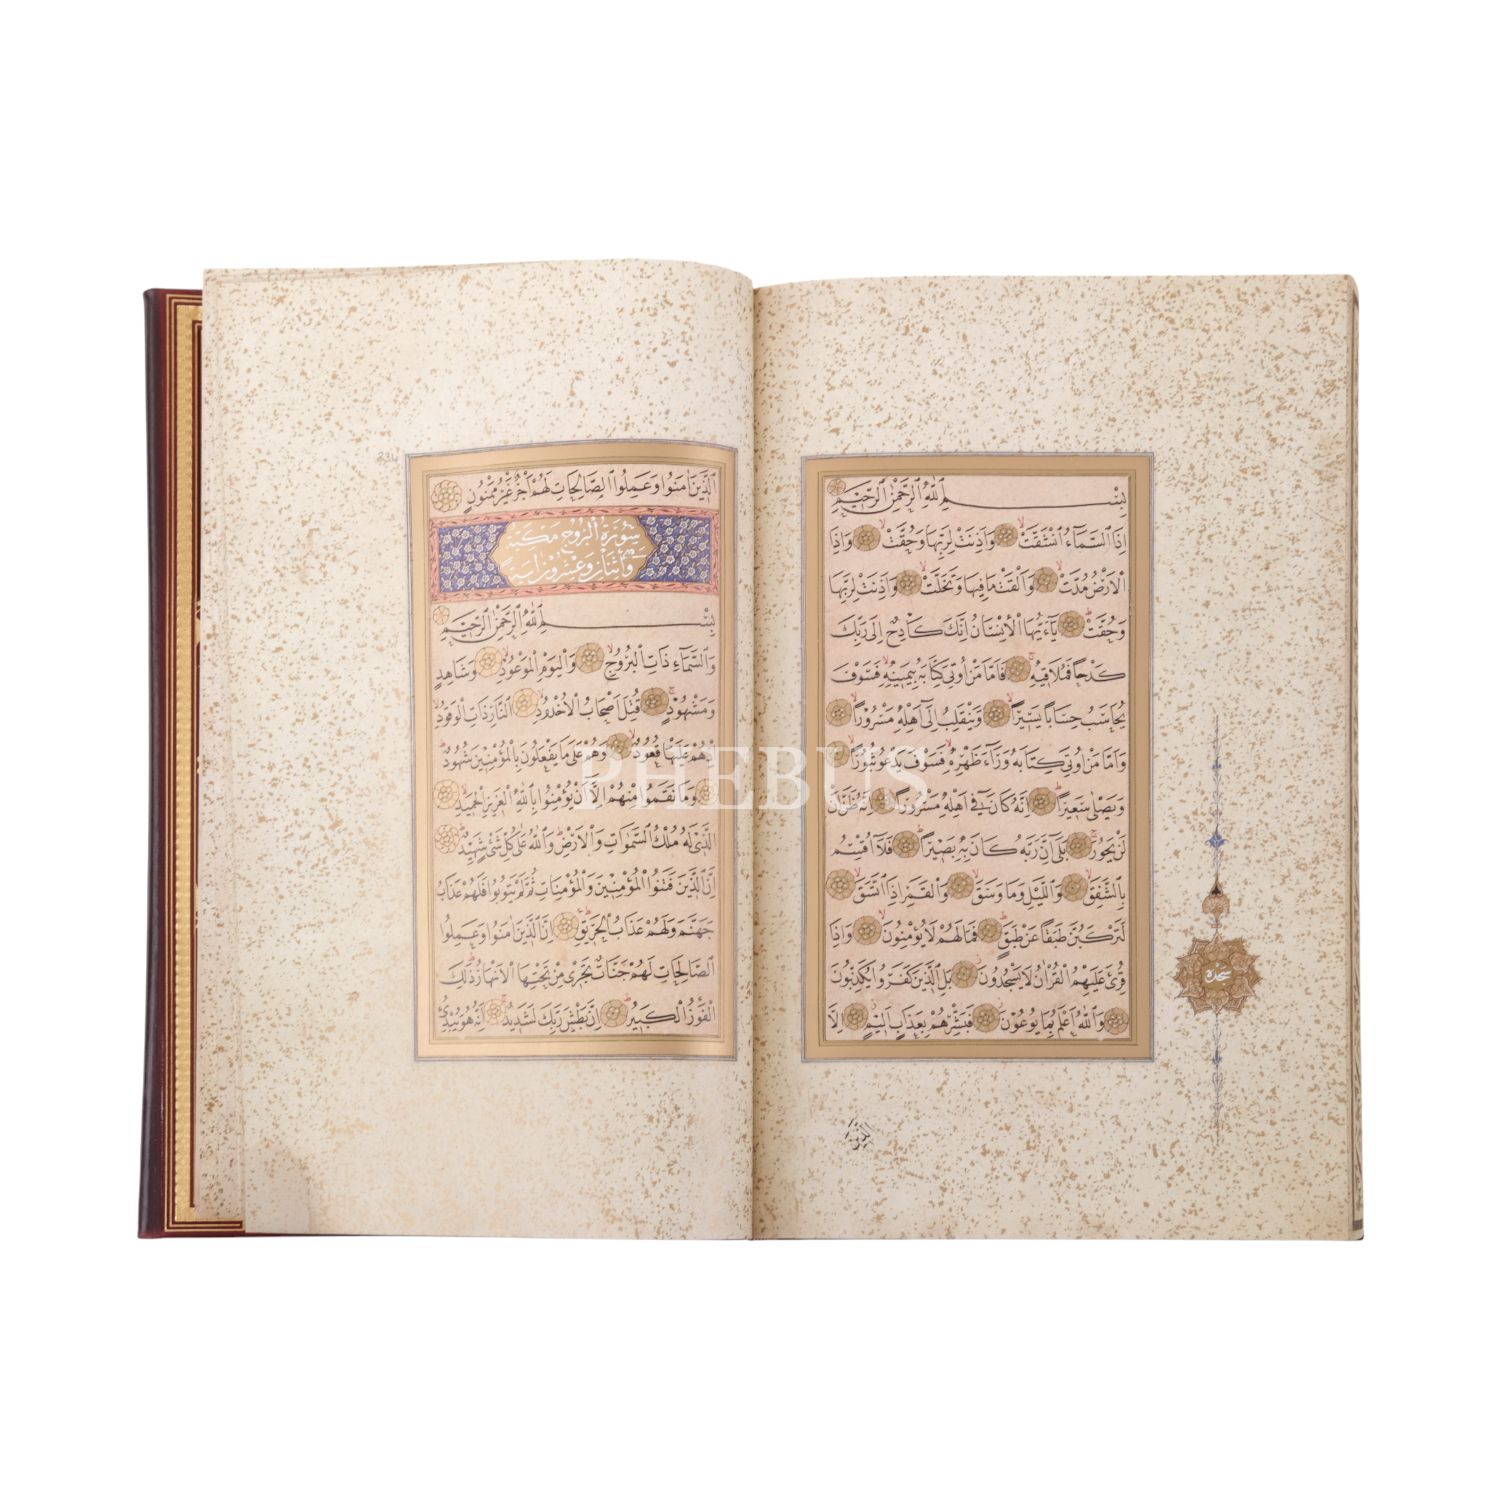 بِسْمِ اللّٰهِ الرَّحْمٰنِ الرَّحِيمِ
اِذَا السَّمَاءُ انْشَقَّتْ وَاَذِنَتْ لِرَبِّهَا وَحُقَّتْ وَاِذَا
الْاَرْضُ مُدَّتْ وَاَلْقَتْ مَا فِيهَا وَتَخَلَّتْ وَاَذِنَتْ لِرَبِّهَا
وَحُقَّتْ يَآ اَيُّهَا الْاِنْسَانُ اِنَّكَ كَادِحٌ اِلٰى رَبِّكَ
كَدْحًا فَمُلَاقِيهِ فَاَمَّا مَنْ اُوتِيَ كِتَابَهُ بِيَمِينِهِ فَسَوْفَ
يُحَاسَبُ حِسَابًا يَسِيرًا وَيَنْقَلِبُ اِلٰٓى اَهْلِهِ مَسْرُورًا
وَاَمَّا مَنْ اُوتِيَ كِتَابَهُ وَرَآءَ ظَهْرِهِ فَسَوْفَ يَدْعُو ثُبُورًا
وَيَصْلٰى سَعِيرًا اِنَّهُ كَانَ فِٓي اَهْلِهِ مَسْرُورًا اِنَّهُ ظَنَّ اَنْ
لَنْ يَحُورَ بَلٰٓى اِنَّ رَبَّهُ كَانَ بِهِ بَصِيرًا فَلَآ اُقْسِمُ
بِالشَّفَقِ وَالَّيْلِ وَمَا وَسَقَ وَالْقَمَرِ اِذَا اتَّسَقَ
لَتَرْكَبُنَّ طَبَقًا عَنْ طَبَقٍ فَمَا لَهُمْ لَا يُؤْمِنُونَ وَاِذَا
قُرِئَ عَلَيْهِمُ الْقُرْاٰنُ لَا يَسْجُدُونَ بَلِ الَّذِينَ كَفَرُوا يُكَذِّبُونَ
وَاللّٰهُ اَعْلَمُ بِمَا يُوعُونَ فَبَشِّرْهُمْ بِعَذَابٍ اَلِيمٍ اِلَّا
سجده
الَّذِينَ
الَّذِينَ اٰمَنُوا وَعَمِلُوا الصَّالِحَاتِ لَهُمْ اَجْرٌ غَيْرُ مَمْنُونٍ
سُورَةُ الْبُرُوجِ مَكِّيَّةٌ
وَهِيَ اثْنَانِ وَعِشْرُونَ اٰيَةً
بِسْمِ اللّٰهِ الرَّحْمٰنِ الرَّحِيمِ
وَالسَّمَآءِ ذَاتِ الْبُرُوجِ وَالْيَوْمِ الْمَوْعُودِ وَشَاهِدٍ
وَمَشْهُودٍ قُتِلَ اَصْحَابُ الْاُخْدُودِ النَّارِ ذَاتِ الْوَقُودِ
اِذْ هُمْ عَلَيْهَا قُعُودٌ وَهُمْ عَلٰى مَا يَفْعَلُونَ بِالْمُؤْمِنِينَ شُهُودٌ
وَمَا نَقَمُوا مِنْهُمْ اِلَّٓا اَنْ يُؤْمِنُوا بِاللّٰهِ الْعَزِيزِ الْحَمِيدِ
الَّذِي لَهُ مُلْكُ السَّمٰوَاتِ وَالْاَرْضِ وَاللّٰهُ عَلٰى كُلِّ شَيْءٍ شَهِيدٌ
اِنَّ الَّذِينَ فَتَنُوا الْمُؤْمِنِينَ وَالْمُؤْمِنَاتِ ثُمَّ لَمْ يَتُوبُوا فَلَهُمْ عَذَابُ
جَهَنَّمَ وَلَهُمْ عَذَابُ الْحَرِيقِ اِنَّ الَّذِينَ اٰمَنُوا وَعَمِلُوا
الصَّالِحَاتِ لَهُمْ جَنَّاتٌ تَجْرِي مِنْ تَحْتِهَا الْاَنْهَارُ ذٰلِكَ
الْفَوْزُ الْكَبِيرُ اِنَّ بَطْشَ رَبِّكَ لَشَدِيدٌ اِنَّهُ هُوَ يُبْدِئُ
PHEBUS